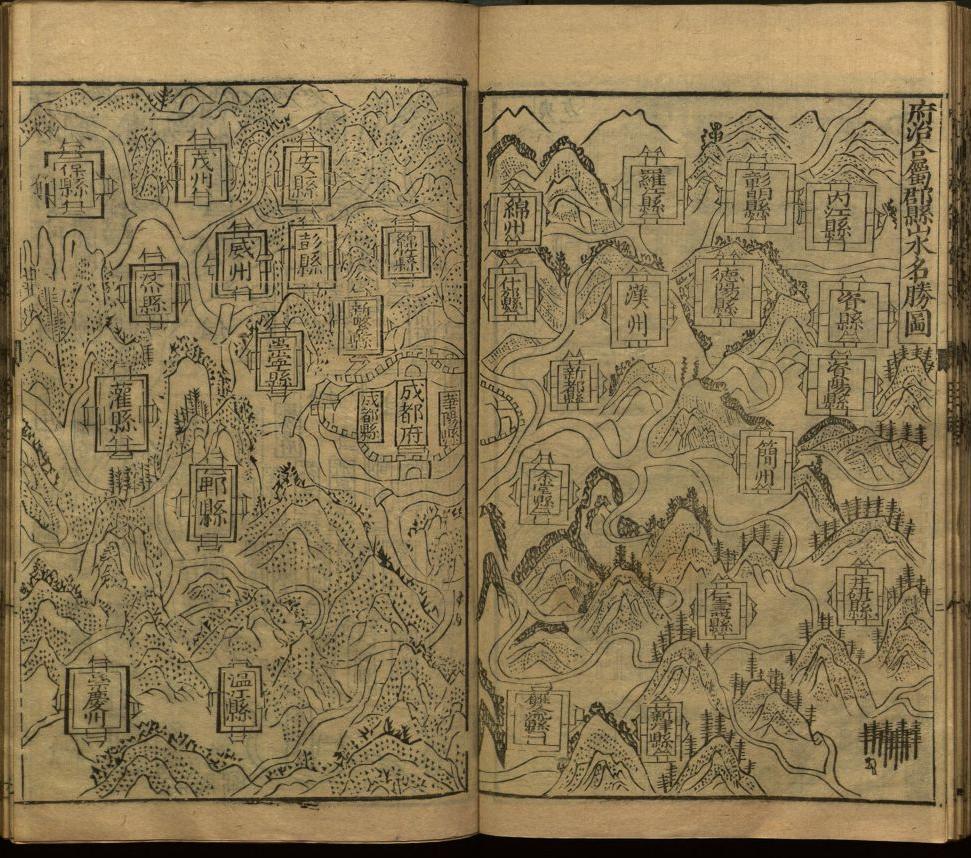 府治合蜀郡縣山水名勝圖
內江縣
彰明縣
羅江縣
綿州
德陽縣
漢州
什縣
資陽縣
新都縣
簡州
金堂縣
井研縣
仁壽縣
安縣
茂州
保縣
彭縣
威州
新繁縣
華陽縣
成都府
成都縣
灌縣
郫縣
溫江縣
崇慶州